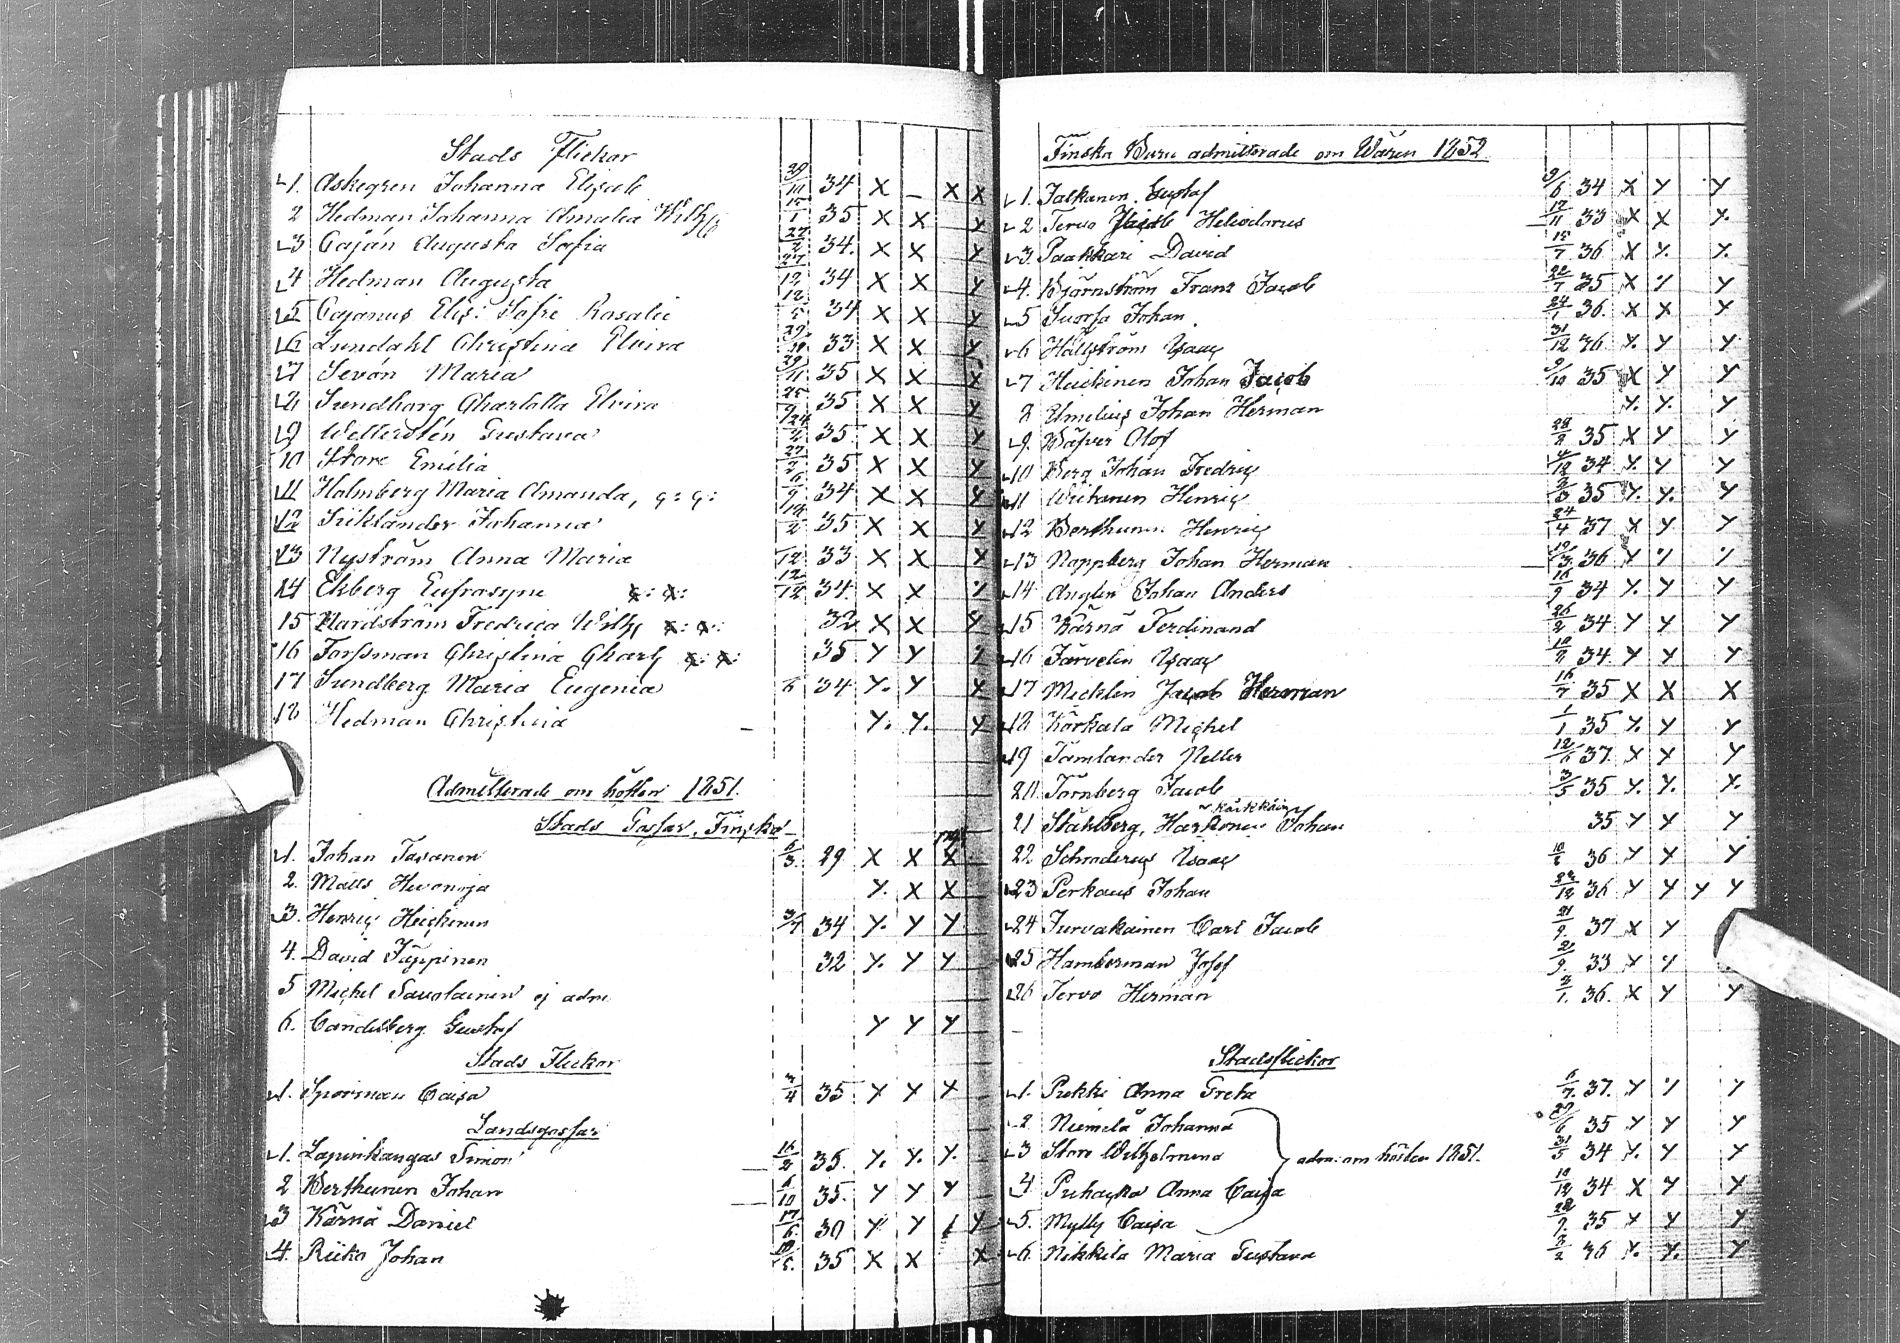 Stads Flickor
1. Askegren Johanna Elisab 29/10 34 X – X X
2 Hedman Johanna Amalia Wilh 15/1 35 X X Y
3 Caján Augusta Sofia 22/2 34. X X Y
4 Hedman Augusta 27/12 34 X X Y
5 Cajanus Elis: Sofie Rosalie 12/5 34 X X Y
6 Lundahl Christina Elvira 33 X X Y
7 Sevón Maria 29/11 35 X X X
8 Sundborg Charlotta Elvira 25/9 35 X X Y
9 Wetterstén Gustava 35 X X Y
10 Store Emilia 27/2 35 X X Y
11 Holmberg Maria Amanda, 6/9 34 X X Y
12 Siklander Johanna 35 X X Y
13 Nyström Anna Maria /12 33 X X X
14 Ekberg Eufrosyne 12/12 34 X X Y
15 Nordström Fredrica Wilh 32 X X Y
16 Forssman Christina Charl 35 Y Y Y
17 Sundberg Maria Eugenia 6 34 Y. Y X
18 Hedman Christina Y. Y. Y
Admitterade om hösten 1851.
Stads Gossar, Finska
1. Johan Tasanen 6/3 29 X X X
2. Matts Y. X X
3. Henric Heickinen 3/7 34 Y. Y Y.
4. David Jäppinen 32 Y. Y Y
5 Michel Savolainen ej adm
6. Candelberg Gustaf Y Y Y
Stads Flickor
1. Sporman Caisa 3/4 35 Y Y Y
Landsgossar
1. Lapinkangas Simon 16/2 35. Y. Y. Y.
2 Berthunen Johan 6/10 35. Y Y Y
3 Kärnä Daniel 17/6 30 Y Y Y
4. Riiko Johan 35 X X X
Finska Barn admitterade om Våren 1852
1. Jalkanen Gustaf 9/6 34 X Y Y
2 Tervo Jacob Heliodorus 12/11 33 X X Y.
3. Paakkari David 15/7 36 X Y. Y.
4. Björnström Frans Jacob 22/7 35 X Y Y
5 Suorsa Johan 24/1 36. X X Y
6 Hällström Isaac 31/12 36 Y. Y Y
7 Heickinen Johan Jacob 9/10 35 X Y Y
8 Johan Herman Y. Y. Y
9. Bäfver Olof 28/8 35 X Y Y
10 Berg Johan Fredric 4/12 34 Y. X Y
11 Wiihanen Henric 2/3 35 Y. Y. Y
12 Berthunen Henric 24/4 37 X Y Y
13 Noppberg Johan Herman 19/3 36 Y Y Y
14 Anglin Johan Anders 16/9 34 Y. Y Y
15 Kärnä Ferdinand 26/2 34 Y Y Y
16 Järvelin Isaac 34 Y Y Y
17 Mecklin Jacob Herman 16/7 35 X X X
18 Korkala Michel 1/1 35 Y. Y Y
19 Tamlander Petter 12/6 37. X X Y
20. Törnberg Jacob 3/5 35 Y. Y. Y.
Karkkainen
21 Ståhlberg, Harkonen Johan 35 Y Y Y
22 Schroderus Isaac 36 Y X Y
23 Perkaus Johan 22/12 36 Y Y Y Y
24 Jurvakainen Carl Jacob 21/9 37 X Y
25 Hamberman Josef 33 Y Y
26 Tervo Herman 2/1. 36. X Y Y
Stadsflickor
1. Pukki Anna Greta 6/7. 37. Y Y Y
2 Niemelä Johanna 27/6 35 Y Y Y
3 Store Wilhelmina 31/5 34 Y. Y Y
adm: om hösten 1851.
4 Anna Caisa 10/12 34 X Y Y
5. Mylly Caisa 35 Y X Y
6. Nikkilä Maria Gustava 36 Y. Y. Y